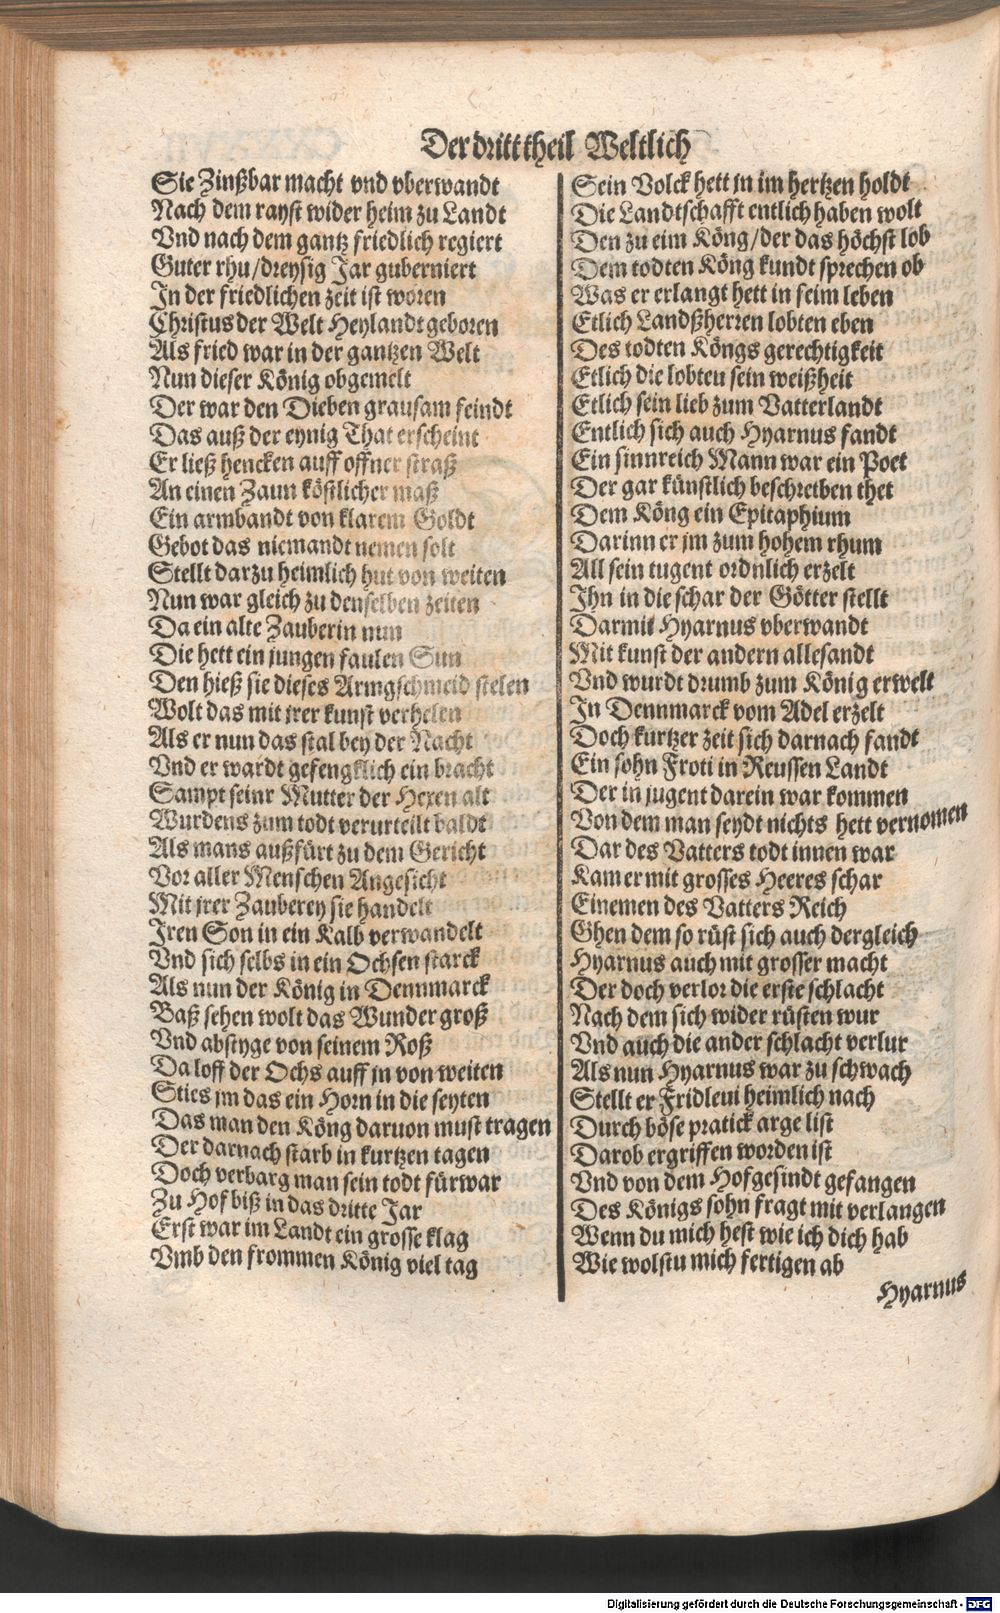 Der dritt theil Weltlich
Sie Zinßbar macht vnd vberwandt
Nach dem rayst wider heim zu Landt
Vnd nach dem gantz friedlich regiert
Guter rhu/dreysig Jar guberniert
In der friedlichen zeit ist woren
Christus der Welt Heylandt geboren
Als fried war in der gantzen Welt
Nun dieser König obgemelt
Der war den Dieben grausam feindt
Das auß der eynig That erscheint
Er ließ hencken auff offner straß
An einen Zaun köstlicher maß
Ein armbandt von klarem Goldt
Gebot das niemandt nemen solt
Stellt darzu heimlich hut von weiten
Nun war gleich zu denselben zeiten
Da ein alte Zauberin nun
Die hett ein jungen faulen Sun
Den hieß sie dieses Armgschmeid stelen
Wolt das mit jrer kunst verhelen
Als er nun das stal bey der Nacht
Vnd er wardt gefengklich ein bracht
Sampt seinr Mutter der Hexen alt
Wurdens zum todt verurteilt baldt
Als mans außfürt zu dem Gericht
Vor aller Menschen Angesicht
Mit jrer Zauberey sie handelt
Iren Son in ein Kalb verwandelt
Vnd sich selbs in ein Ochsen starck
Als nun der König in Dennmarck
Baß sehen wolt das Wunder groß
Vnd abstyge von seinem Roß
Da loff der Ochs auff jn von weiten
Sties jm das ein Horn in die seyten
Das man den Köng daruon must tragen
Der darnach starb in kurtzen tagen
Doch verbarg man sein todt fürwar
Zu Hof biß in das dritte Jar
Erst war im Landt ein grosse klag
Vmb den frommen König viel tag
Sein Volck hett jn im hertzen holdt
Die Landtschafft entlich haben wolt
Den zu eim Köng/der das höchst lob
Dem todten Köng kundt sprechen ob
Was er erlangt hett in seim leben
Etlich Landßherren lobten eben
Des todten Köngs gerechtigkeit
Etlich die lobteu sein weißheit
Etlich sein lieb zum Vatterlandt
Entlich sich auch Hyarnus fandt
Ein sinnreich Mann war ein Poet
Der gar künstlich beschretben thet
Dem Köng ein Epitaphium
Darinn er jm zum hohem rhum
All sein tugent ordnlich erzelt
Ihn in die schar der Götter stellt
Darmit Hyarnus vberwandt
Mit kunst der andern allesandt
Vnd wurdt drumb zum König erwelt
In Dennmarck vom Adel erzelt
Doch kurtzer zeit sich darnach fandt
Ein sohn Froti in Reussen Landt
Der in jugent darein war kommen
Von dem man seydt nichts hett vernomen
Dar des Vatters todt innen war
Kam er mit grosses Heeres schar
Einemen des Vatters Reich
Ghen dem so rüst sich auch dergleich
Hyarnus auch mit grosser macht
Der doch verlor die erste schlacht
Nach dem sich wider rüsten wur
Vnd auch die ander schlacht verlur
Als nun Hyarnus war zu schwach
Stellt er Fridleui heimlich nach
Durch böse pratick arge list
Darob ergriffen worden ist
Vnd von dem Hofgesindt gefangen
Des Königs sohn fragt mit verlangen
Wenn du mich hest wie ich dich hab
Wie wolstu mich fertigen ab
Hyarnus
Digitalisierung gefördert durch die Deutsche Forschungsgemeinschaft - DFG